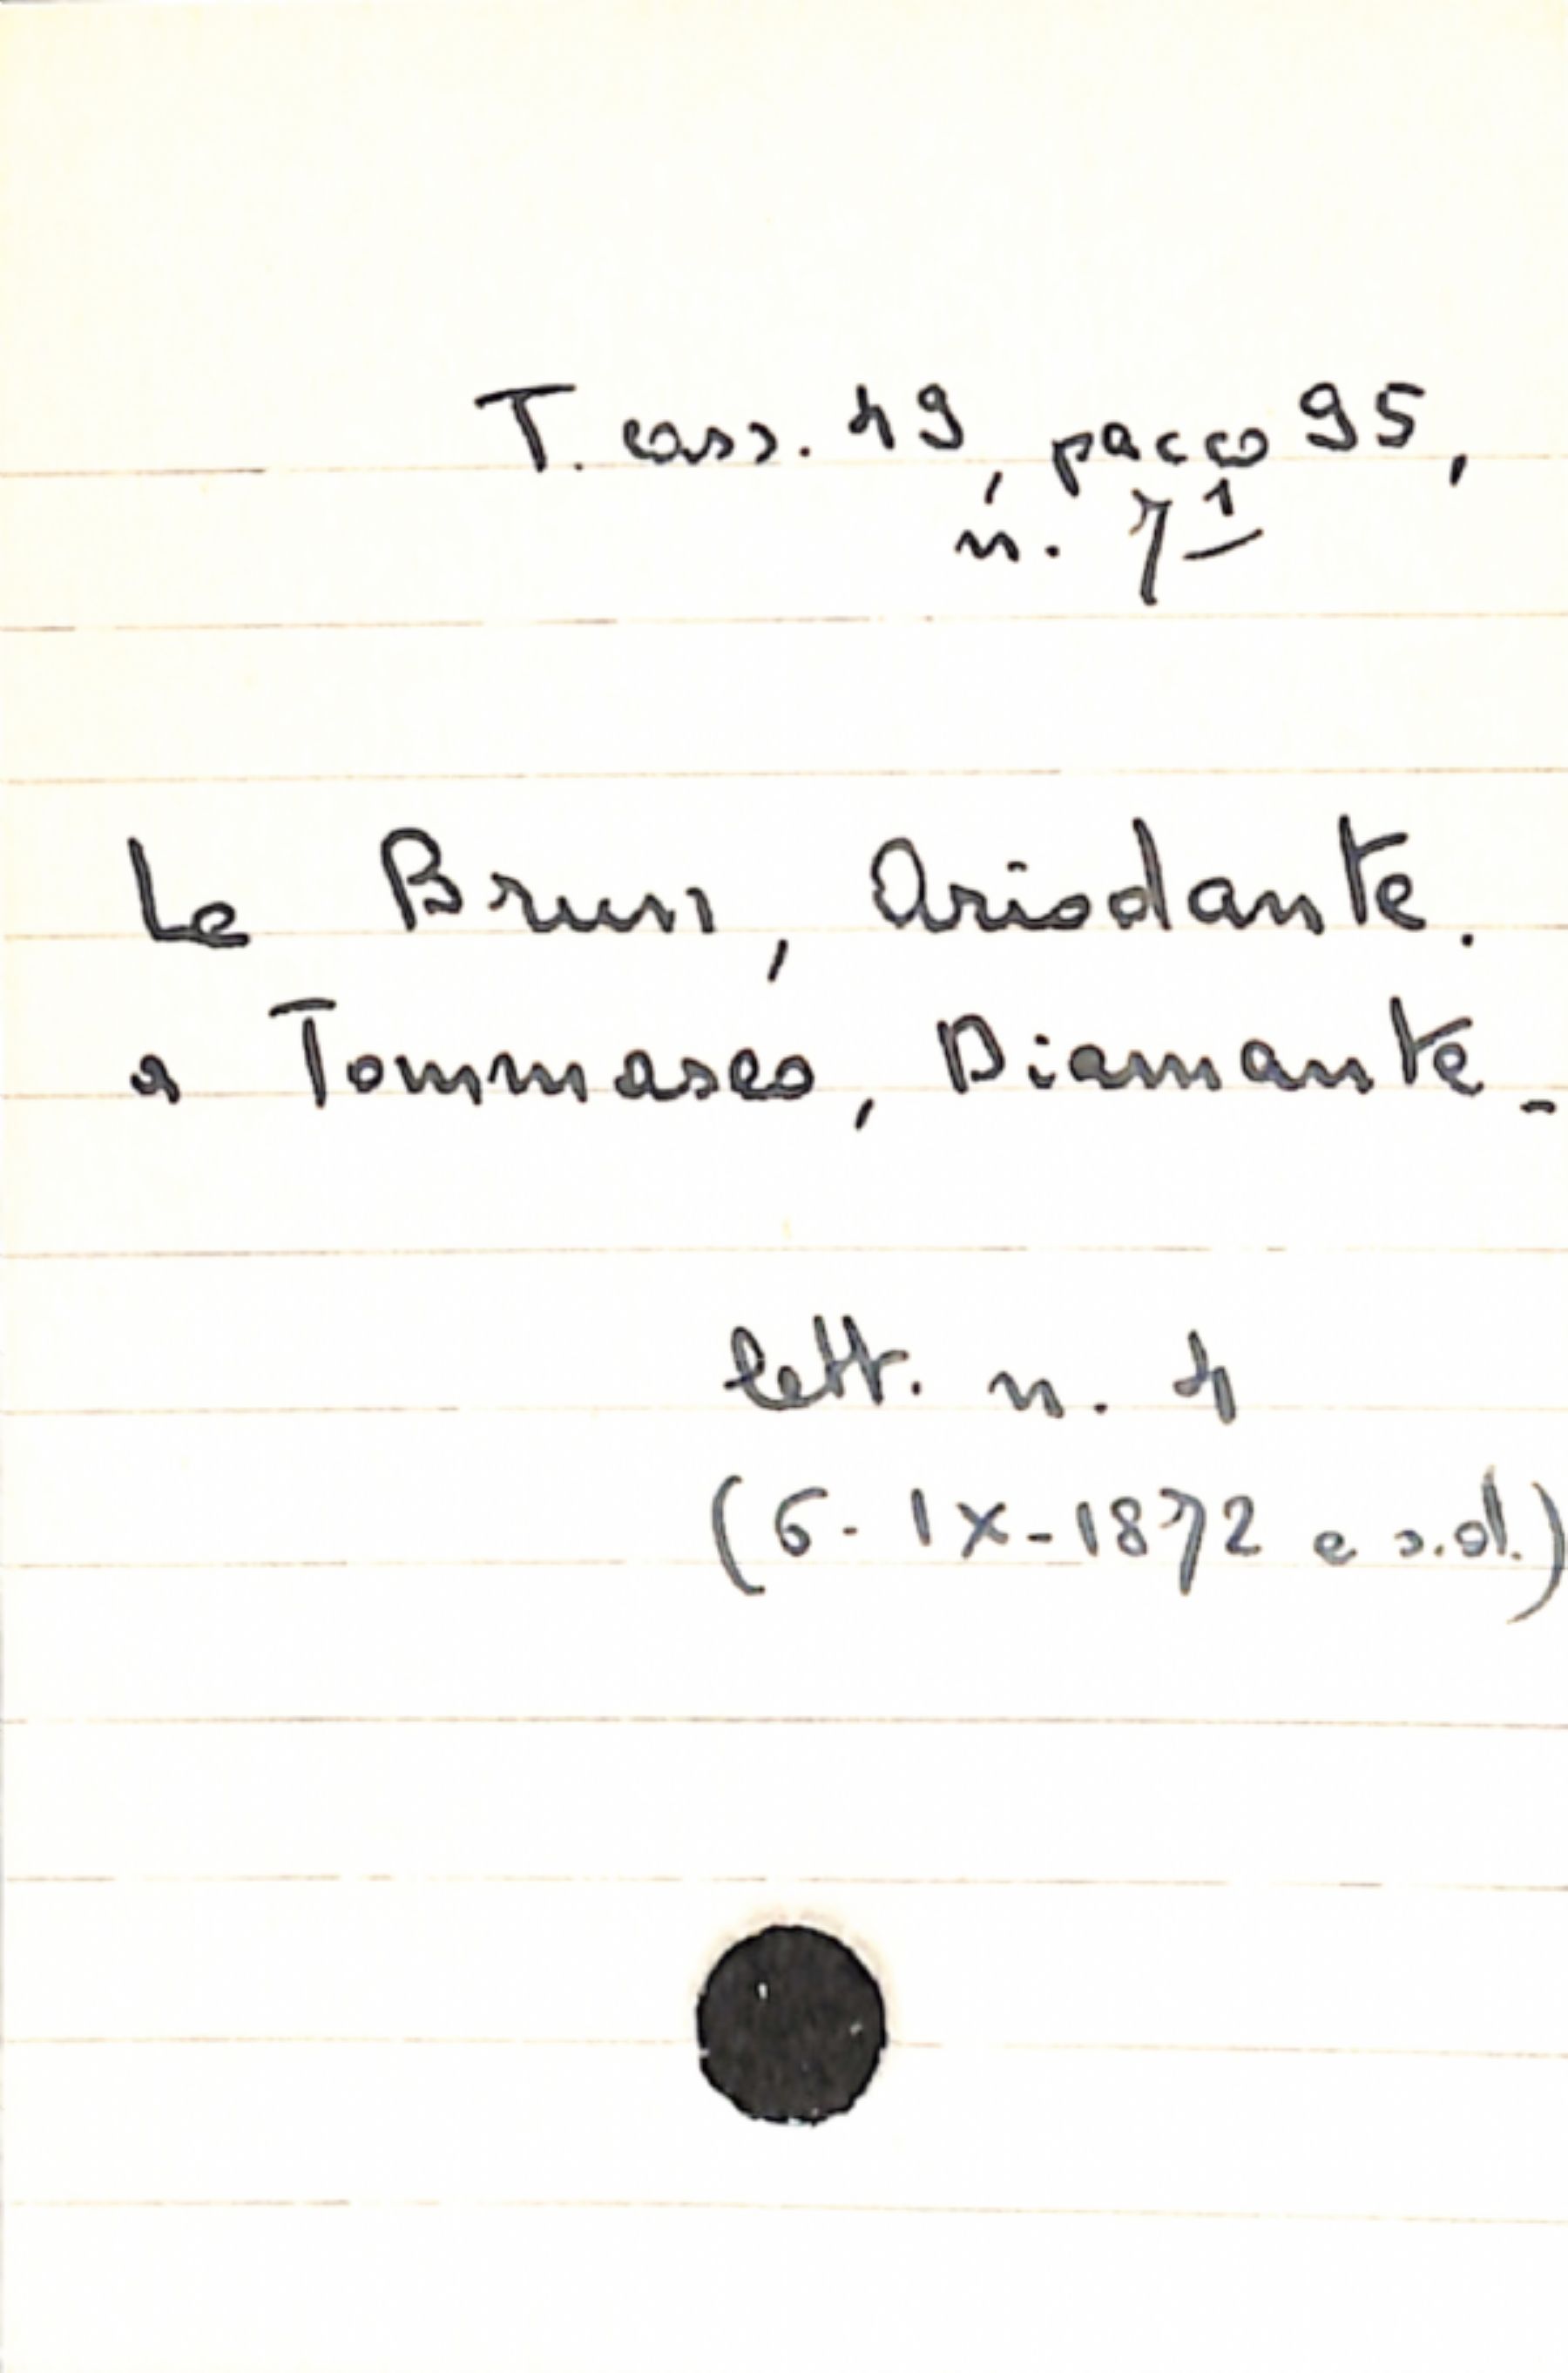 T. cass. 49, pacco 95,
n. 7¹
Le Brun, Ariodante.
a Tommaseo, Diamante.
lett. n. 4
(6-IX-1872 e s.d.)